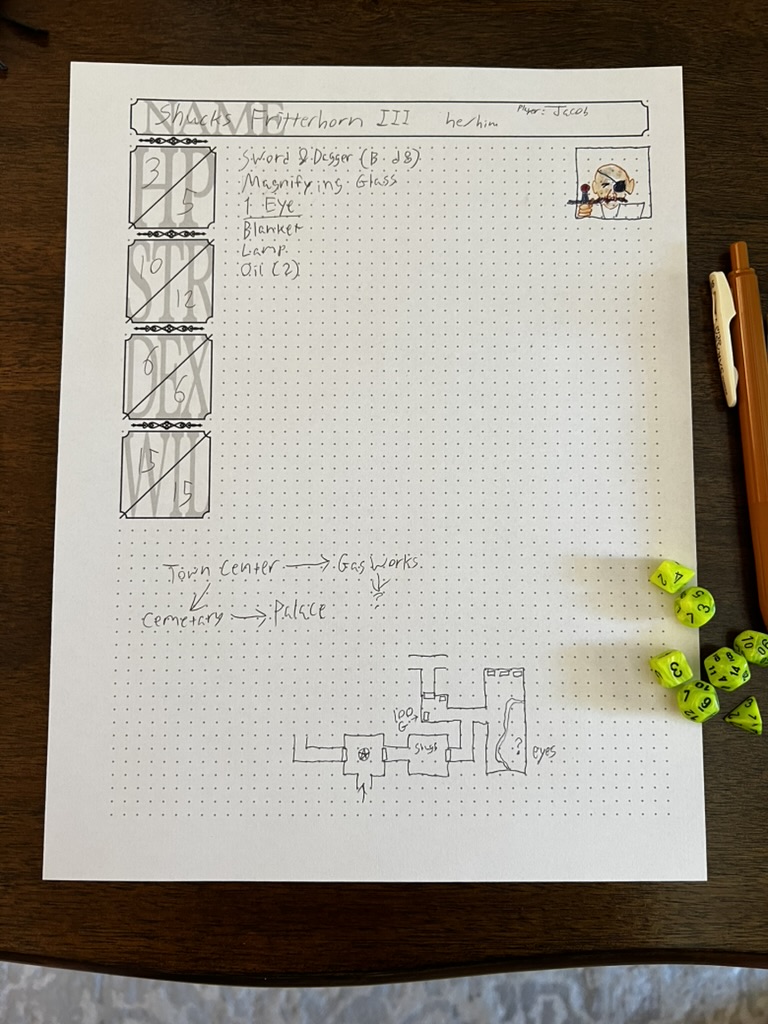 NAME
Shucks Fritterhorn III he/him Player: Jacob
HP
3
5
STR
10
12
DEX
6
6
WIL
15
15
Sword & Dagger (B. d8)
Magnifying Glass
1 Eye
Blanket
Lamp
Oil (2)
Town Center → Gas Works
?
Cemetary → Palace
100
G
Slugs
?
eyes